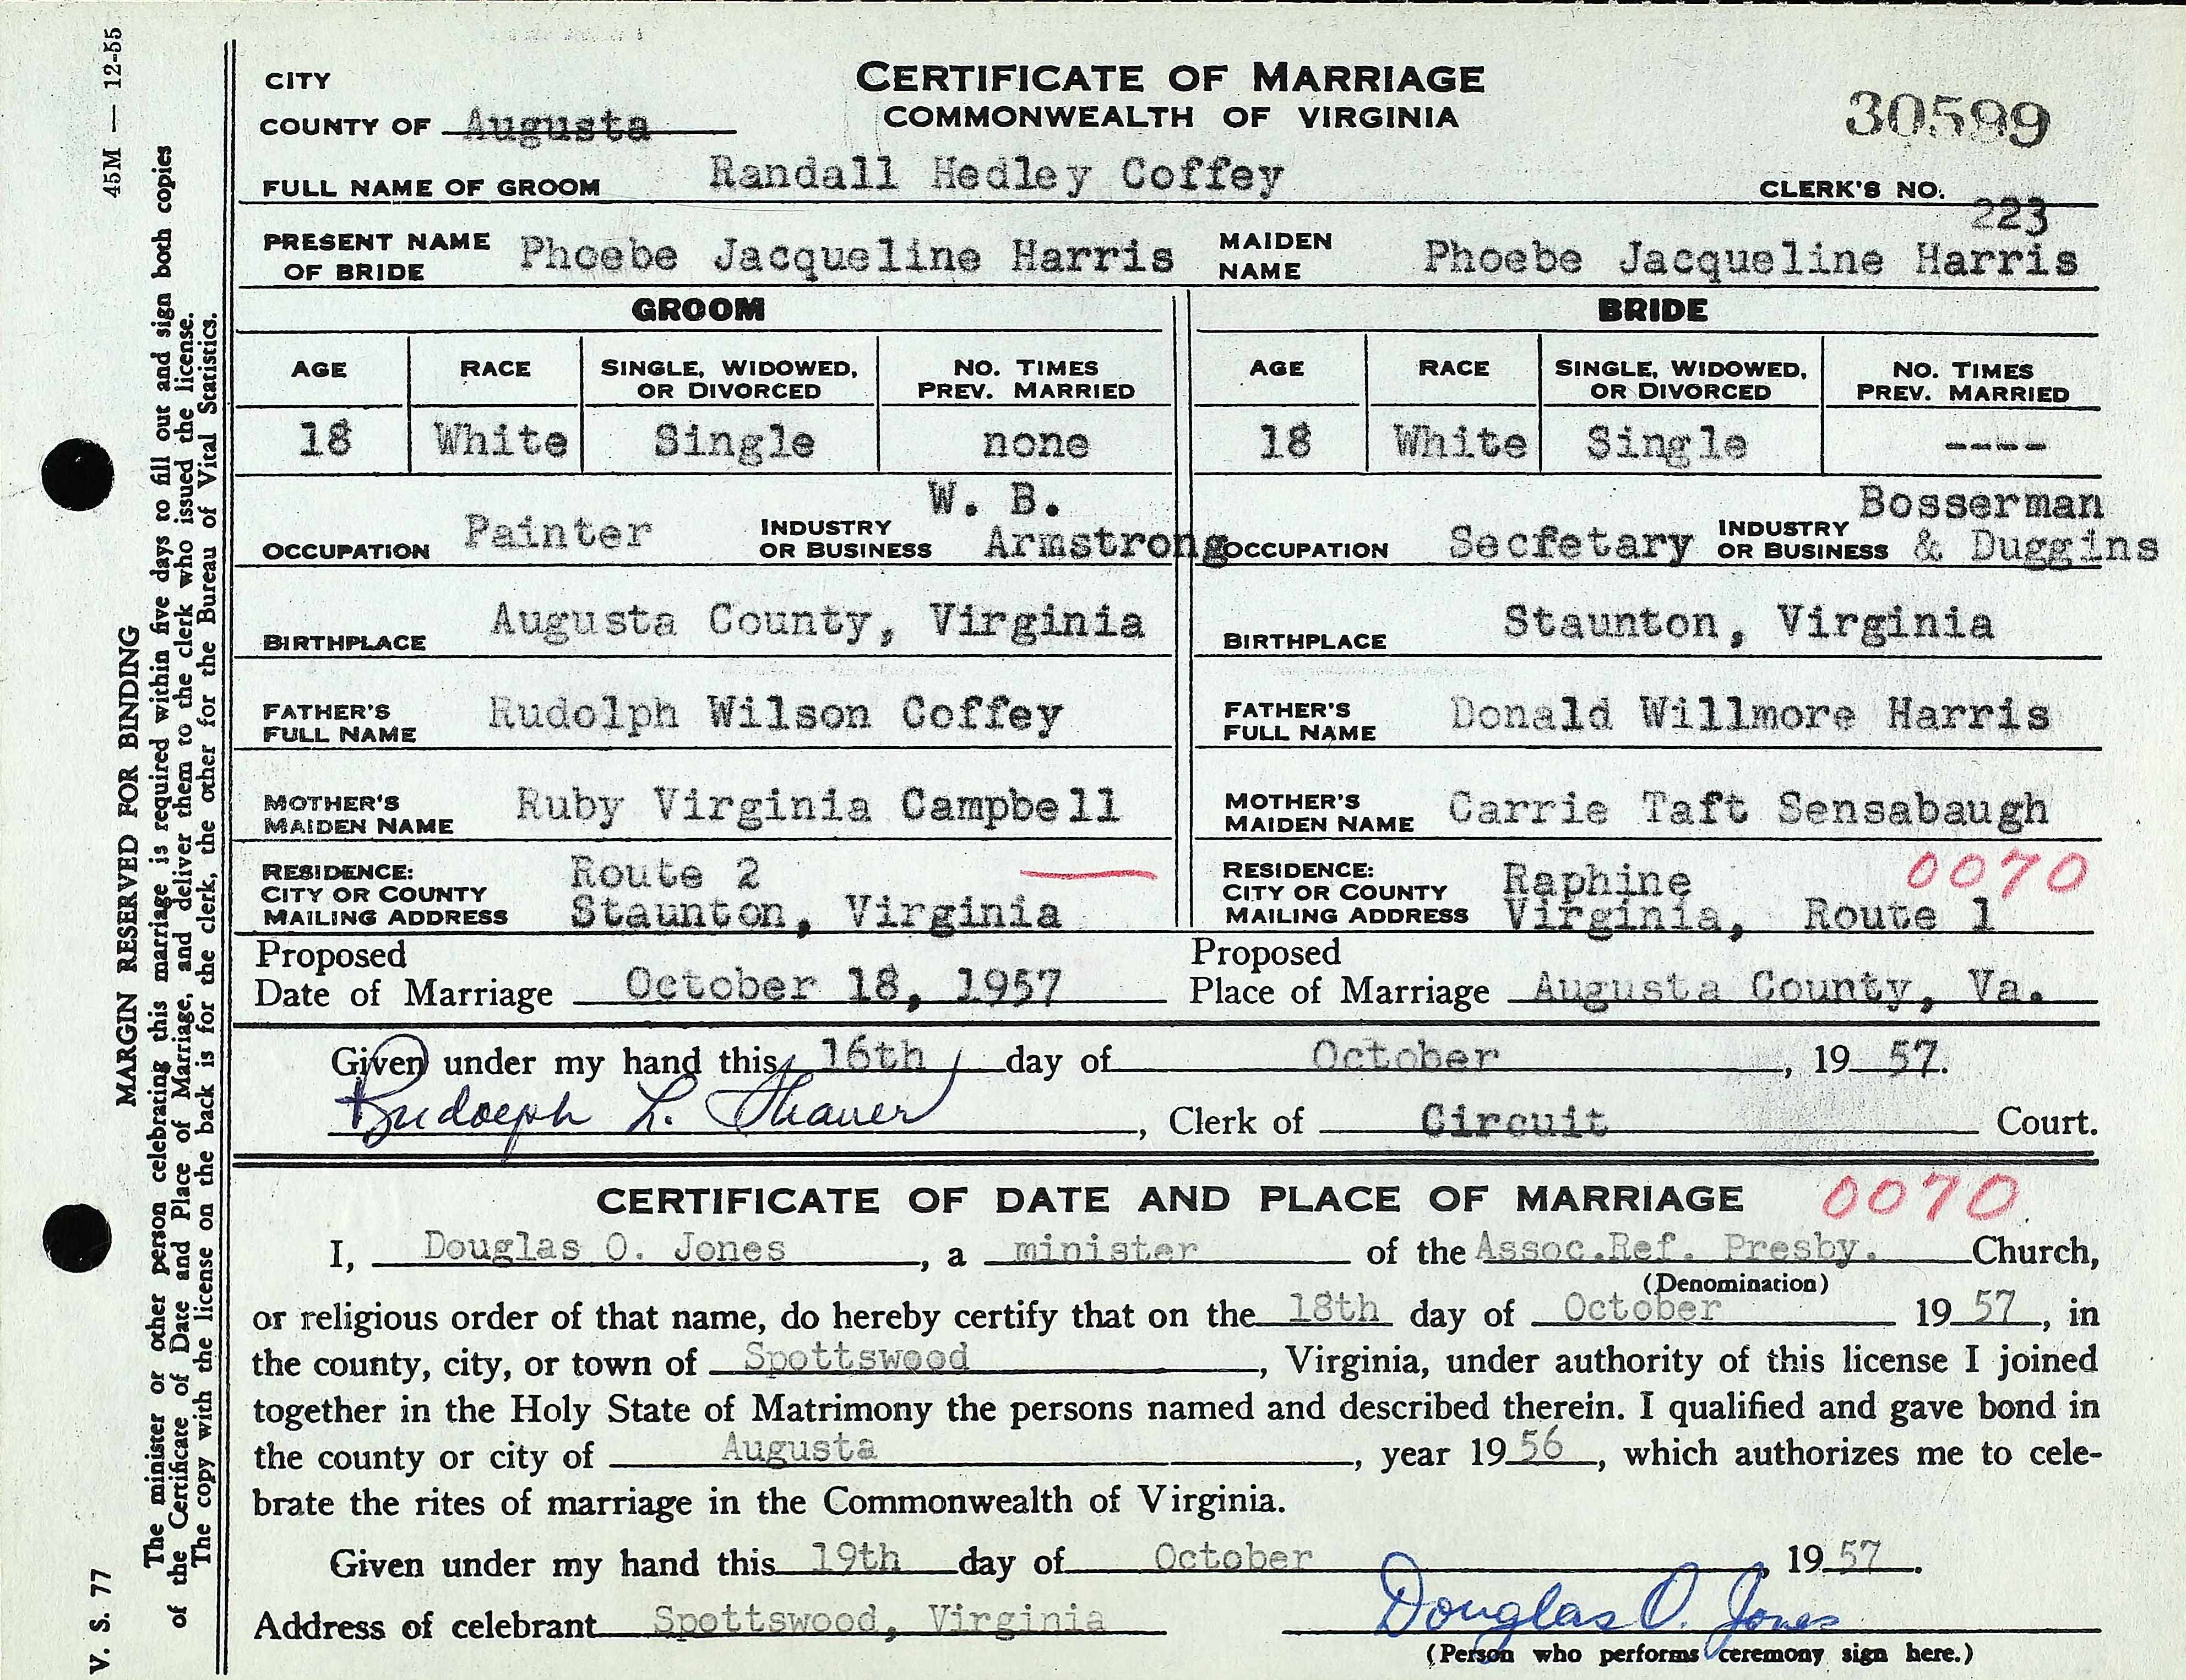 45M — 12-55
CITY
CERTIFICATE OF MARRIAGE
COUNTY OF Augusta
COMMONWEALTH OF VIRGINIA
30599
FULL NAME OF GROOM Randall Hedley Coffey CLERK'S NO. 223
PRESENT NAME OF BRIDE Phoebe Jacqueline Harris MAIDEN NAME Phoebe Jacqueline Harris
GROOM BRIDE
AGE RACE SINGLE, WIDOWED, OR DIVORCED NO. TIMES PREV. MARRIED AGE RACE SINGLE, WIDOWED, OR DIVORCED NO. TIMES PREV. MARRIED
18 White Single none 18 White Single ----
OCCUPATION Painter INDUSTRY OR BUSINESS W. B. Armstrong OCCUPATION Secfetary INDUSTRY OR BUSINESS Bosserman & Duggins
BIRTHPLACE Augusta County, Virginia BIRTHPLACE Staunton, Virginia
FATHER'S FULL NAME Rudolph Wilson Coffey FATHER'S FULL NAME Donald Willmore Harris
MOTHER'S MAIDEN NAME Ruby Virginia Campbell MOTHER'S MAIDEN NAME Carrie Taft Sensabaugh
RESIDENCE: CITY OR COUNTY MAILING ADDRESS Route 2 Staunton, Virginia RESIDENCE: CITY OR COUNTY MAILING ADDRESS Raphine Virginia, Route 1 0070
Proposed Date of Marriage October 18, 1957 Proposed Place of Marriage Augusta County, Va.
Given under my hand this 16th day of October, 19 57.
Rudolph L. Shaver, Clerk of Circuit Court.
CERTIFICATE OF DATE AND PLACE OF MARRIAGE 0070
I, Douglas O. Jones, a minister of the Assoc.Ref. Presby. Church,
(Denomination)
or religious order of that name, do hereby certify that on the 18th day of October 19 57, in
the county, city, or town of Spottswood, Virginia, under authority of this license I joined
together in the Holy State of Matrimony the persons named and described therein. I qualified and gave bond in
the county or city of Augusta, year 19 56, which authorizes me to cele-
brate the rites of marriage in the Commonwealth of Virginia.
Given under my hand this 19th day of October, 19 57.
Address of celebrant Spottswood, Virginia Douglas O. Jones
(Person who performs ceremony sign here.)
V. S. 77
MARGIN RESERVED FOR BINDING
The minister or other person celebrating this marriage is required within five days to fill out and sign both copies
of the Certificate of Date and Place of Marriage, and deliver them to the clerk who issued the license.
The copy with the license on the back is for the clerk, the other for the Bureau of Vital Statistics.